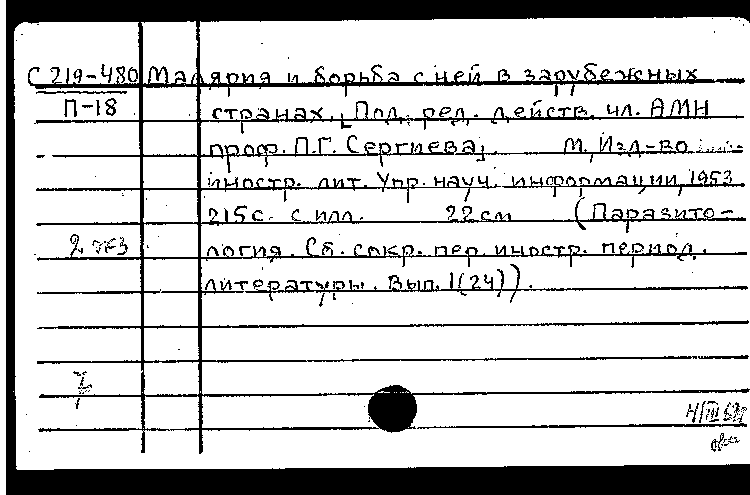 С 219-480 Малярия и борьба с ней в зарубежных
П-18 странах. [Под. ред. действ. чл. АМН
проф. П.Г. Сергиева]. М., Изд-во
иностр. лит. Упр. науч. информации, 1953
215 с. с илл. 22 см (Паразито-
2 экз логия. Сб. сокр. пер. иностр. период.
литературы. Вып. 1(24)).